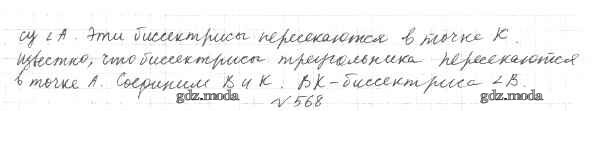 су ∠A. Эти биссектрисы пересекаются в точке K.
Известно, что биссектрисы треугольника пересекаются
в точке A. Соединим B и K. BK - биссектриса ∠B.
gdz.moda gdz.moda
№568